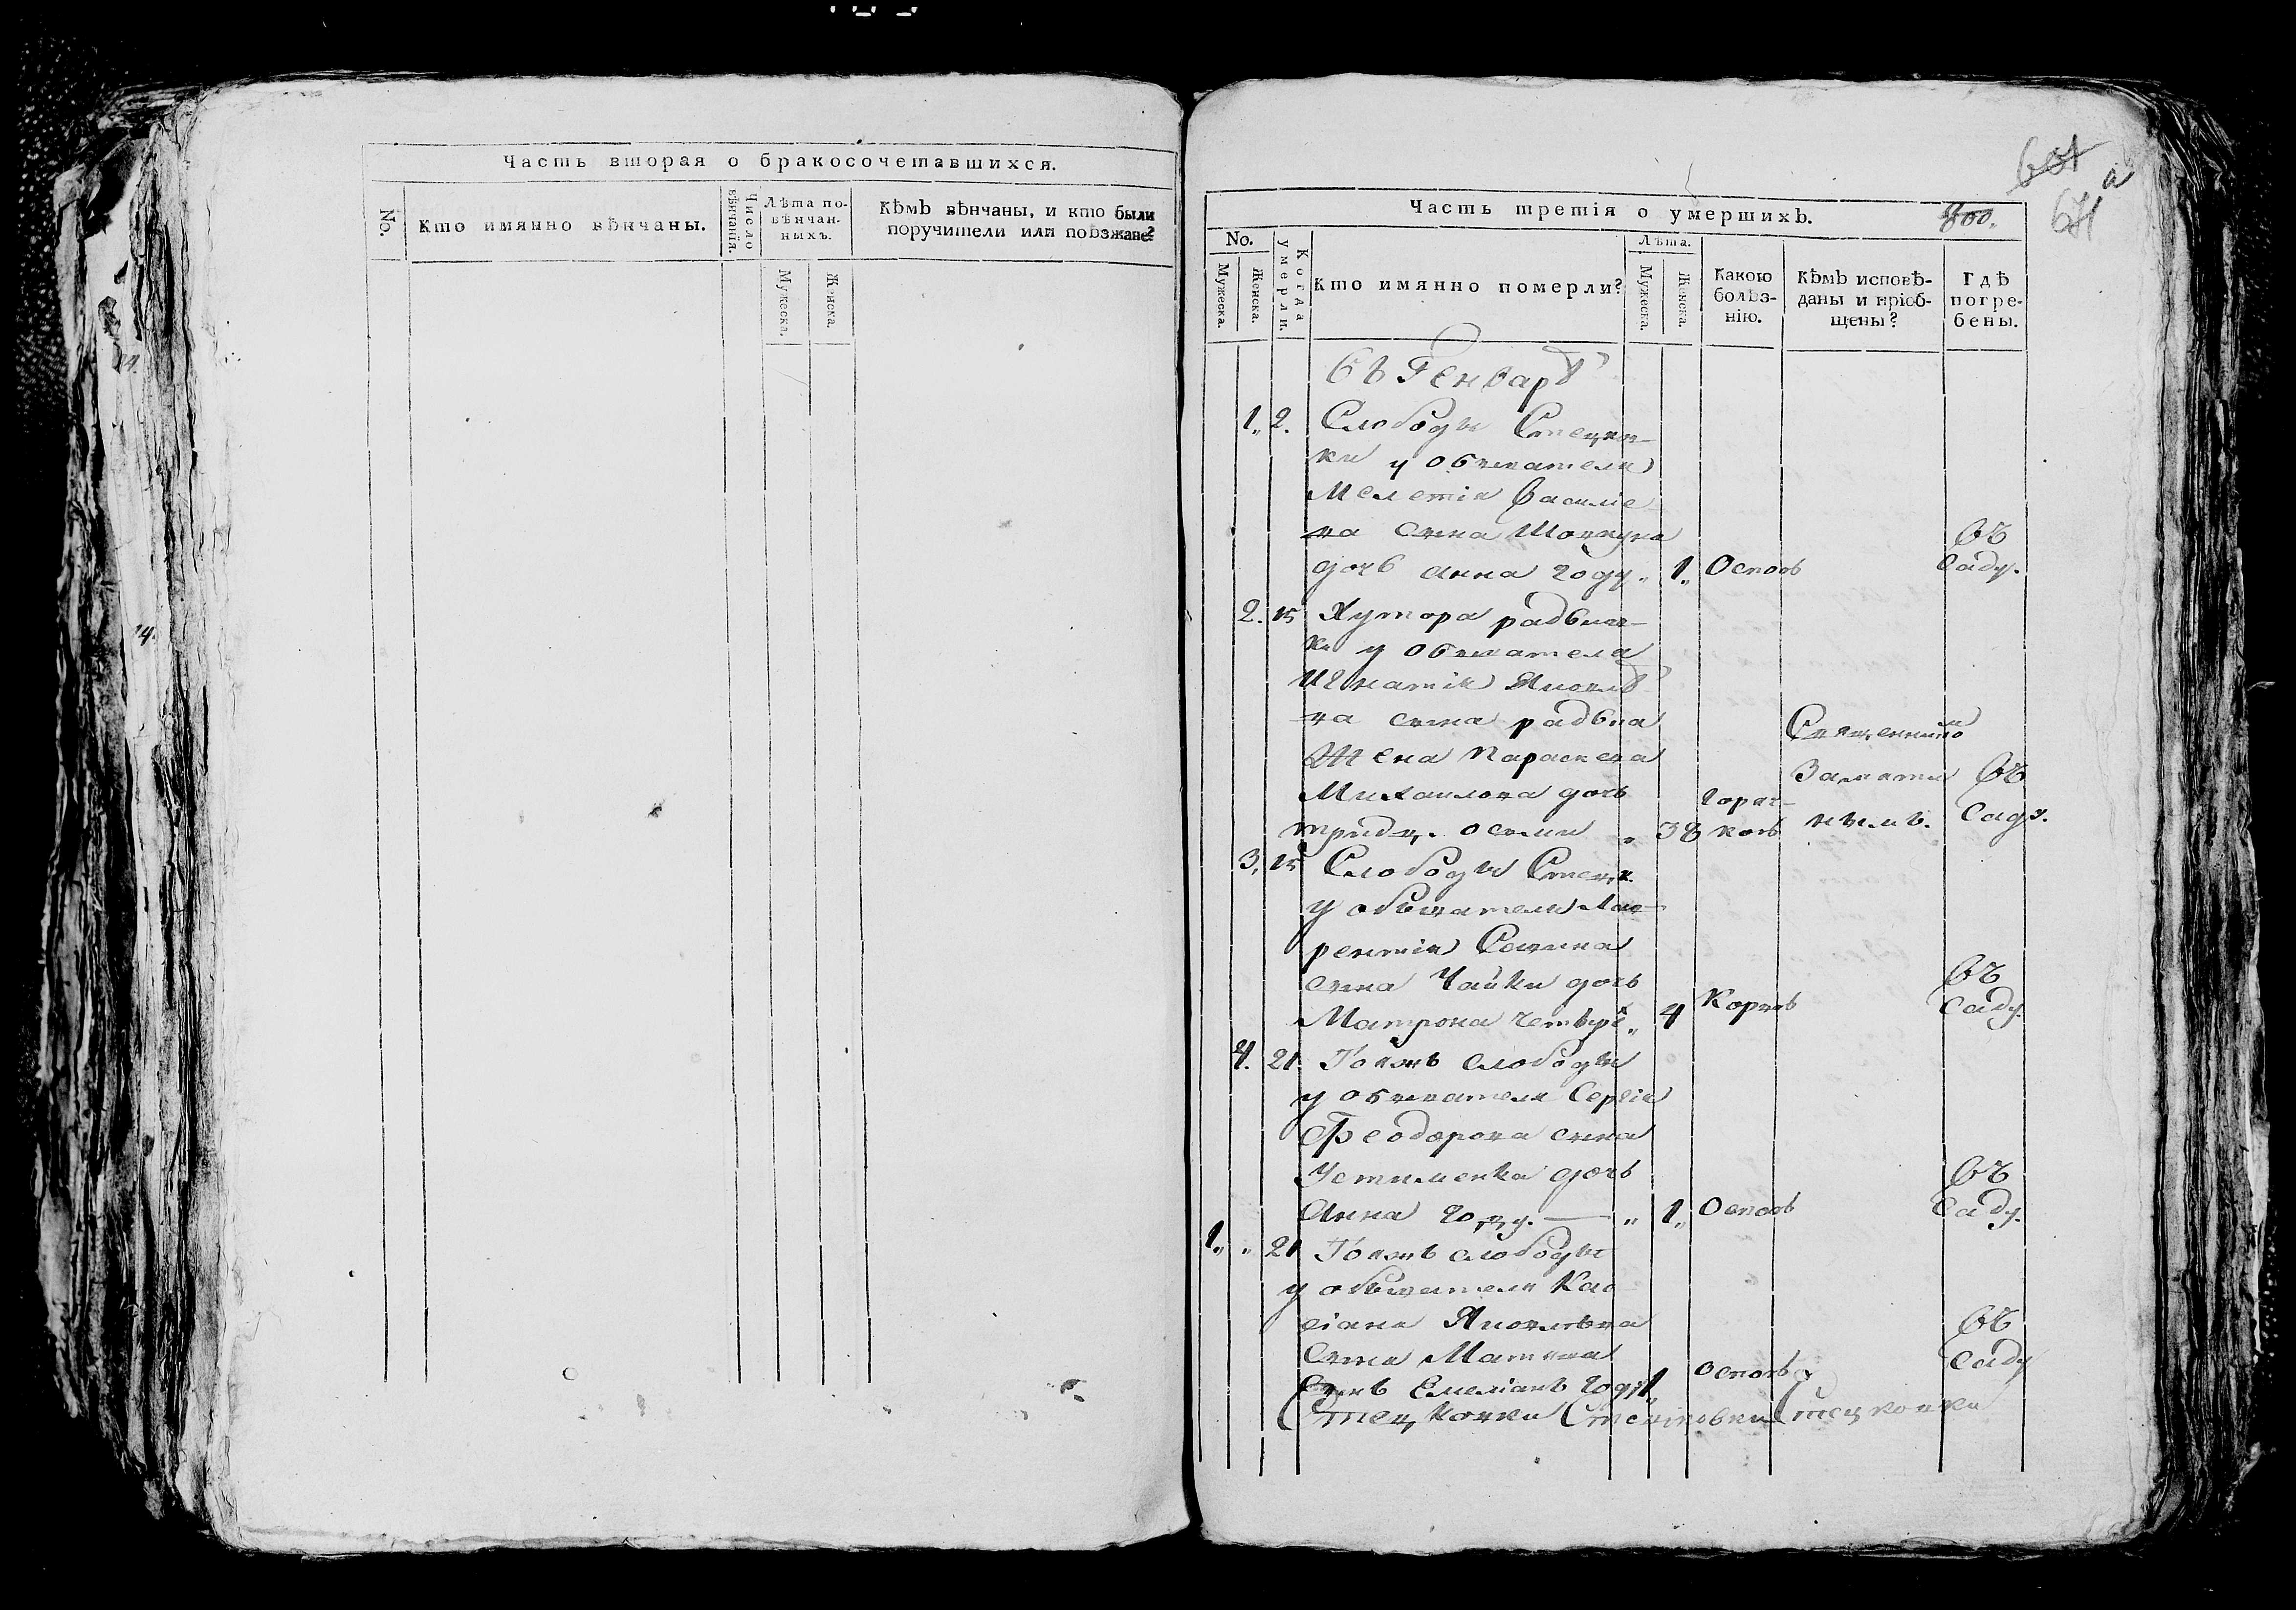 Часть вторая о бракосочетавшихся.
No.
Кто имянно вѣнчаны.
Число вѣнчанія.
Лѣта повѣнчанныхъ.
Мужеска.
Женска.
Кѣмъ вѣнчаны, и кто были
поручители или поѣзжане?
601
а
671
Часть третія о умершихъ.
800.
No.
Мужеска.
Женска.
Когда умерли.
Кто имянно померли?
Лѣта.
Мужеска.
Женска.
Какою
болѣз-
нію.
Кѣмъ исповѣ-
даны и пріоб-
щены?
Гдѣ
погре-
бены.
Въ Генварѣ
1,, 2. Слободы Стецков-
ки у обывателя
Мелетія Василіе
ва сына
дочь Анна году „ 1„ Оспою Въ саду.
2. 15 Хутора
ки у обывателя
Игнатія Яковлѣ
ва сына
Жена Параскева
Михаилова дочь
тридц. осми „ 38 горяч- кою Священнико Замоти нымъ. Въ саду.
3, 15 Слободы Стецк.
у обывателя Лав-
рентія Саввина
сына Чайки дочь
Матрона четвер „ 4 Корью Въ саду.
4. 21 Тояжъ слободы
у обывателя Сергія
Феодорова сына
Устименка дочь
Анна году. — „ 1„ Оспою Въ саду.
1„ „ 21 Тояжъ слободы
у обывателя Кас
сіана Яковлѣва
Сына
Сынъ Емеліанъ году 1„ оспою Въ саду
Стецковки Стецковки Стецковки